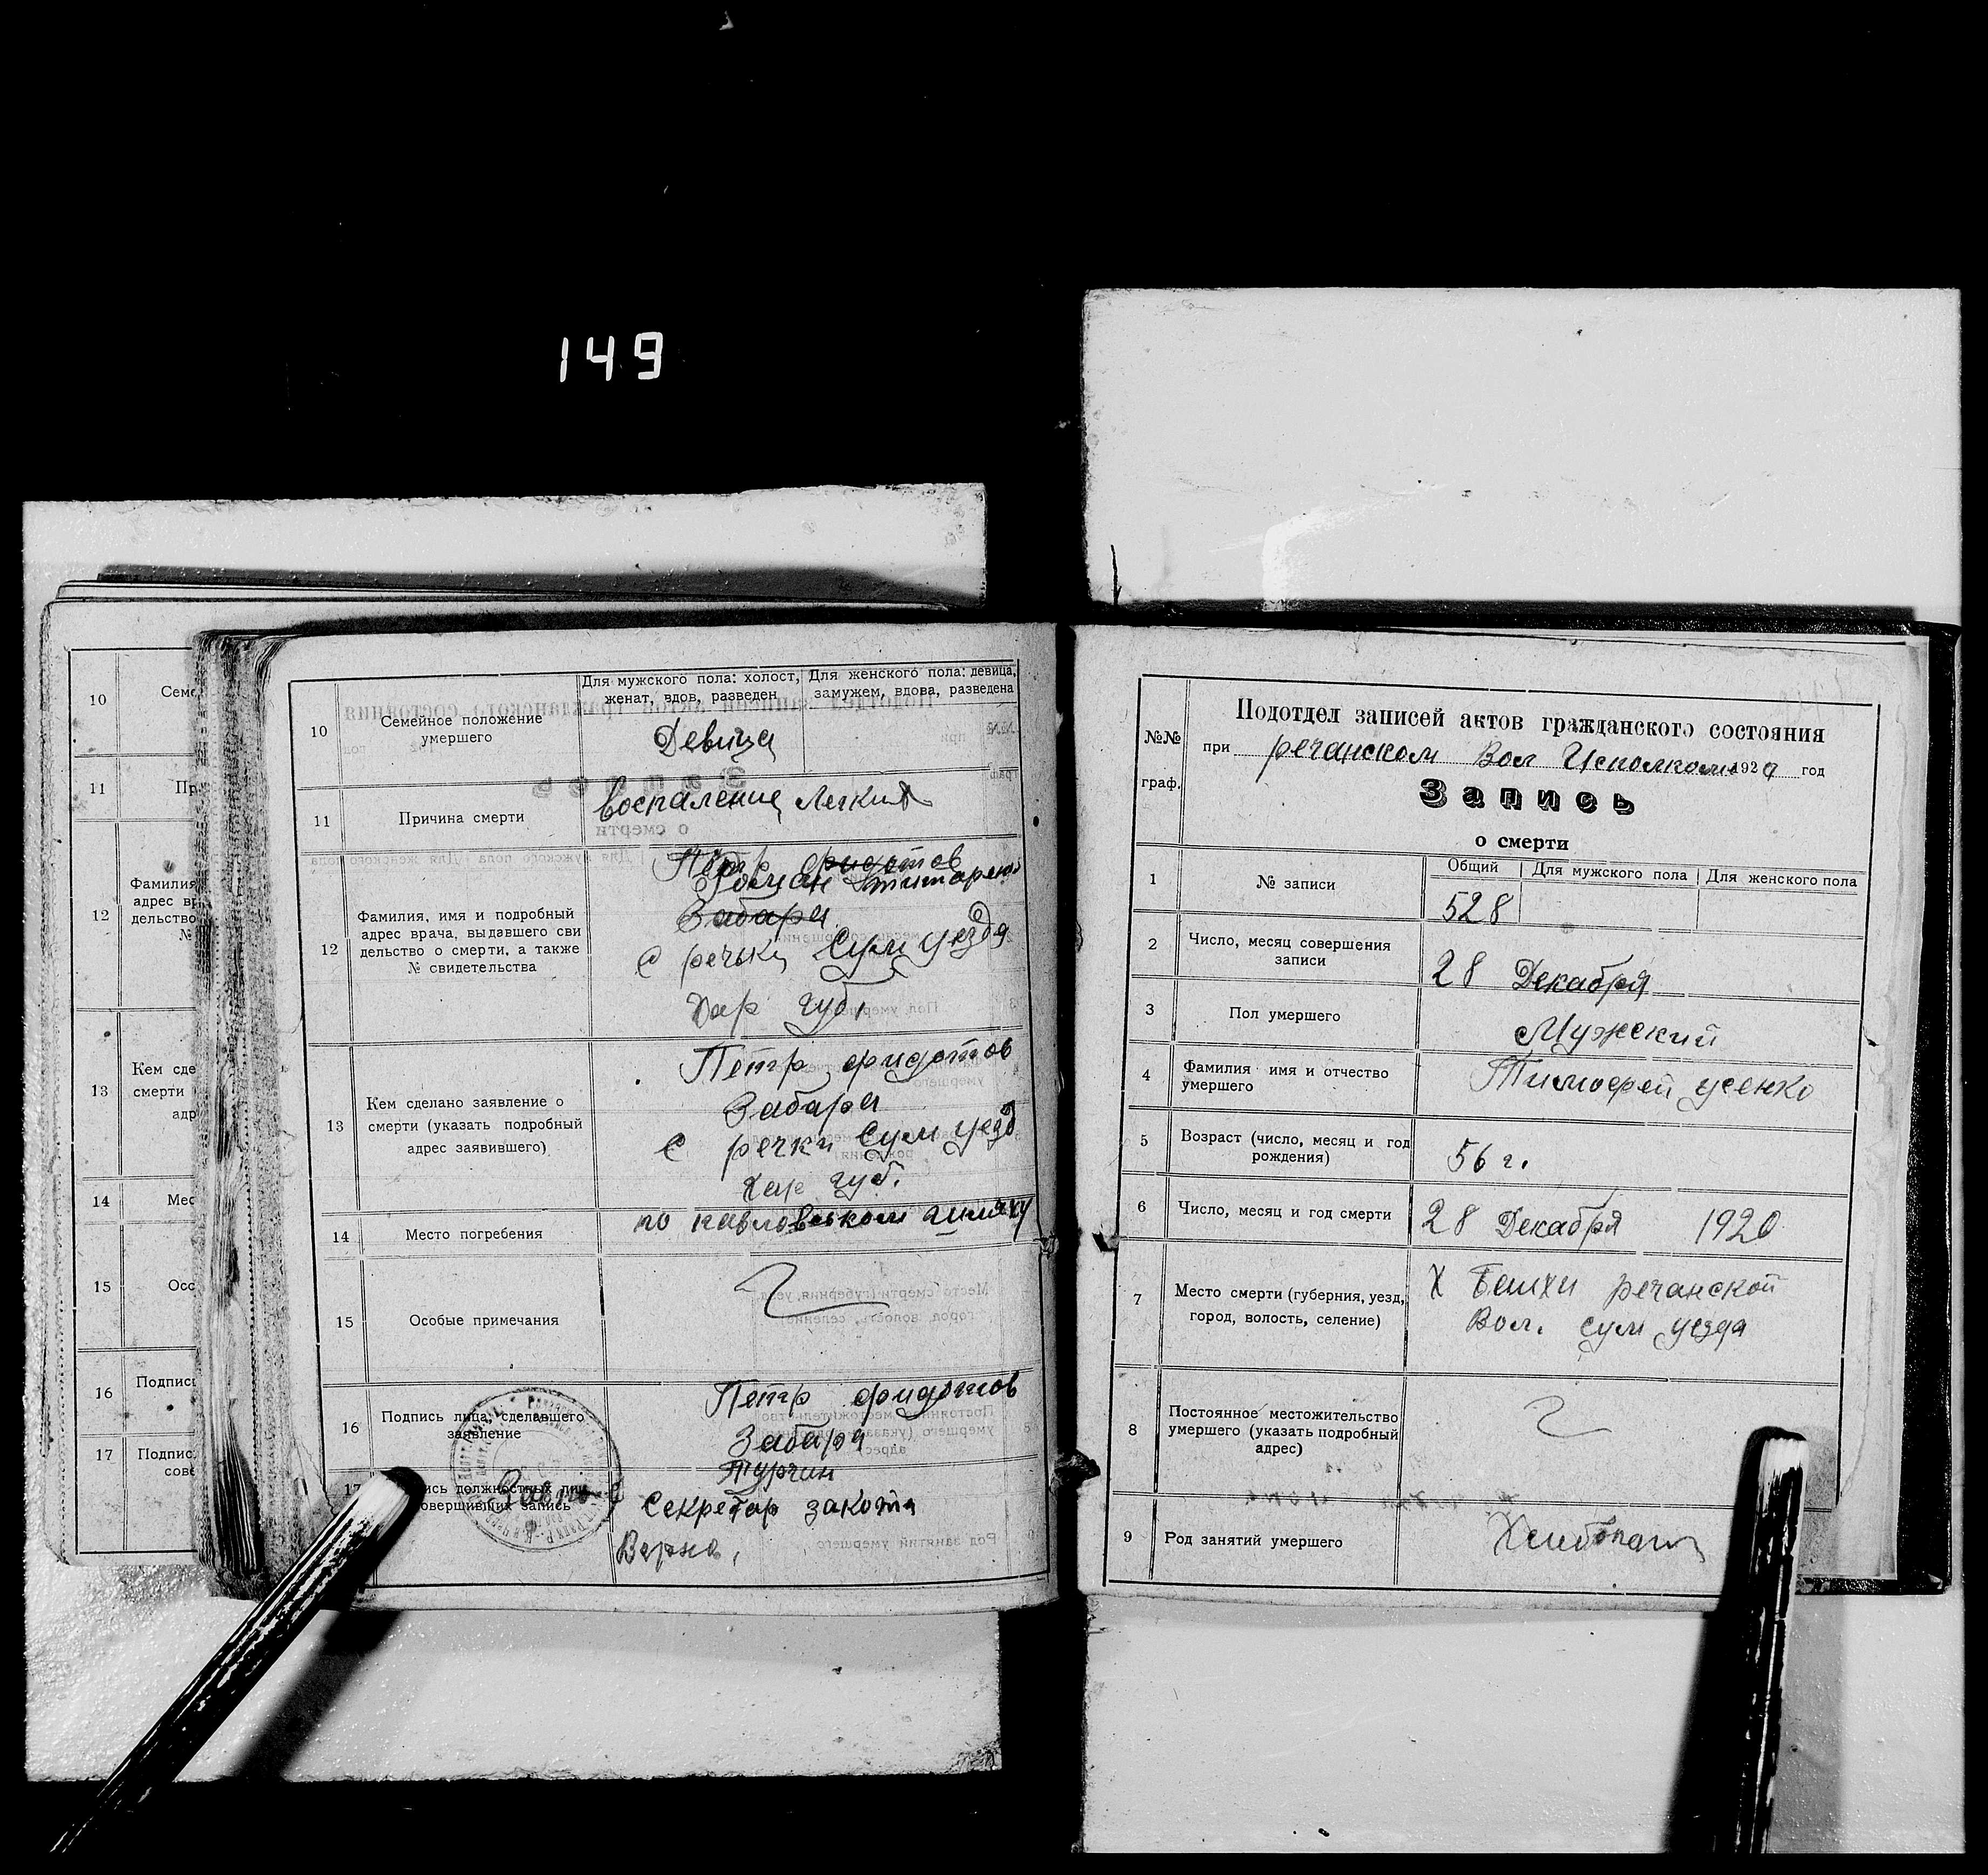 149
10
Семе
11
Пр
12
Фамилия
адрес вр
дельство
№
13
Кем сде
смерти
адр
14
Мес
15
Осс
16
Подпись
17
Подпис
сове
10
Семейное положение
умершего
Для мужского пола: холост,
женат, вдов, разведен
Для женского пола: девица,
замужем, вдова, разведена
Девица
11
Причина смерти
воспаление Легких
12
Фамилия, имя и подробный
адрес врача, выдавшего сви
дельство о смерти, а также
№ свидетельства
Забара
с речки Сум уезда
Хар губ,
13
Кем сделано заявление о
смерти (указать подробный
адрес заявившего)
Петр фидотов
Забара
С речки Сум уезд
Хар губ.
14
Место погребения
по павловском шляху
15
Особые примечания
16
Подпись лица, сделавшего
заявление
Петр фидотов
Забара
17
ись должностных лиц,
овершивших запись
Турчин
Секретар
Верно,
№№
граф.
Подотдел записей актов гражданского состояния
при речанском Вол Исполкоме 1920 год
Запись
о смерти
1
№ записи
Общий
Для мужского пола
Для женского пола
528
2
Число, месяц совершения
записи
28 Декабря
3
Пол умершего
Мужский
4
Фамилия имя и отчество
умершего
Тимофей усенко
5
Возраст (число, месяц и год
рождения)
56 г.
6
Число, месяц и год смерти
28 Декабря 1920
7
Место смерти (губерния, уезд,
город, волость, селение)
Х речанской
Вол. сум уезда
8
Постоянное местожительство
умершего (указать подробный
адрес)
9
Род занятий умершего